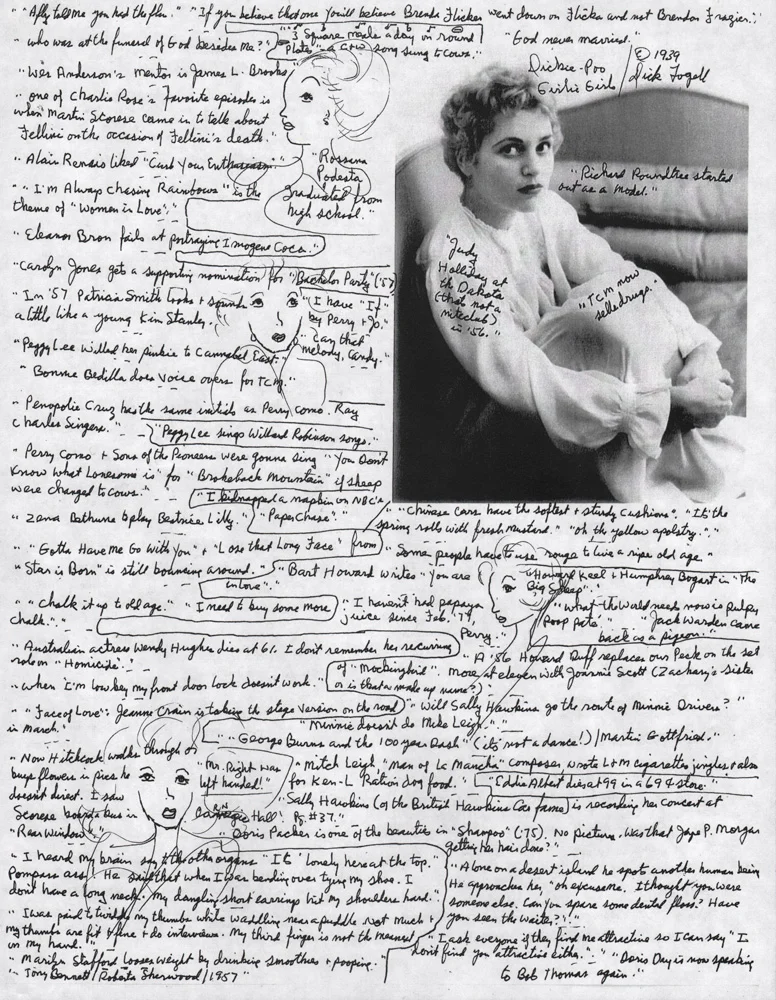 " "Ally told me you had the flu." "If you believe that one you'll believe Brenda Flicker went down on Flicka and not Brendan Frazier."
"who was at the funeral of God besides me?" "3 square meals a day on round plates" - a C+W song sung to cows."
"God never married."
Dickie-Poo Girlie Girls / © 1939 Dick Fogell
"Wes Anderson's mentor is James L. Brooks."
"one of Charlie Rose's favorite episodes is
when Martin Scorese came in to talk about
Fellini on the occasion of Fellini's death."
"Alain Renais liked "Curb Your Enthusiasm"."
"Rossana
Podesta
graduated from
high school."
"Richard Roundtree started
out as a model."
" "I'm Always Chasing Rainbows" is the
theme of "Women in Love"."
"Eleanor Bron fails at portraying Imogene Coca."
"Judy
Holliday at
the Dakota
(that's not a
niteclub)
in '56."
"TCM now
sells drugs."
"Carolyn Jones gets a supporting nomination for "Bachelor Party" ('57)
"In '57 Patricia Smith looks + sounds
a little like a young Kim Stanley."
"I have "If"
by Perry + Jo."
"Can that
melody, Candy."
"Peggy Lee Willed her pinkie to Cannibal East."
"Bonnie Bedilla does voice overs for TCM."
"Penopolie Cruz has the same initials as Perry Como. Ray
Charles Singers."
"Peggy Lee sings Willard Robinson songs."
"Perry Como + Sons of the Pioneers were gonna sing "You Don't
Know What Lonesome is" for "Brokeback Mountain" if sheep
were changed to cows."
"I kidnapped a napkin on NBC's
"PaperChase"."
"Zena Bethune to play Beatrice Lilly."
" "Chinese cars have the softest + sturdy cushions". "It's the
spring rolls with fresh mustard." "oh the yellow apolstry."."
" "Gotta Have Me Go With You" + "Lose that Long Face" from
"Star is Born" is still bouncing around."
"Some people have to use rouge to live a ripe old age."
"Bart Howard writes "You are
in love"."
"Howard Keel + Humphrey Bogart in "The
Big Sleep"."
" "chalk it up to old age." "I need to buy some more
chalk."."
"I haven't had papaya
juice since Feb. '79,
Perry."
"what the world needs now is pulpy
poop pate."
"Jack Warden came
back as a pigeon."
"Australian actress Wendy Hughes dies at 61. I don't remember her recurring
role on "Homicide"."
"A '56 Howard Duff replaces our Peck on the set
of "Mockingbird". More at eleven with Joannie Scott (Zachary's sister
or is that a made up name?)
"when I'm low key my front door lock doesn't work."
" "Face of Love": Jeanne Crain is taking the stage version on the road
in March."
"Will Sally Hawkins go the route of Minnie Drivers?"
"Minnie doesn't do Mike Leigh."."
"George Burns and the 100 year Dash" (it's not a dance!) / Martin Gottfried."
"Now Hitchcock walks through or
buys flowers in pics he
doesn't direct. I saw
Scorese board a bus in
"Rear Window"."
"Mr. Right was
left handed!"
"Mitch Leigh, "Man of La Mancha" composer wrote L+M cigarette jingles + also
for Ken-L Ration dog food."
"Eddie Albert dies at 99 in a 69 ¢ store."
"Sally Hawkins (of the British Hawkins Co. fame) is recording her concert at
Carnegie Hall! Pg. #37."
"Doris Packer is one of the beauties in "Shampoo" ('75). No picture. Was that Jaye P. Morgan
getting her hair done?"
"I heard my brain say to the other organs "It's lonely here at the top."
Pompass ass! He said that when I was bending over tying my shoe. I
don't have a long neck. My dangling short earrings hit my shoulders hard."
"Alone on a desert island he spots another human being
He approaches her, "oh excuse me. I thought you were
someone else. Can you spare some dental floss? Have
you seen the waiter?"!"
"I was paid to twiddle my thumbs while waddling near a puddle. Not much +
my thumbs are fit + fine + do interviews. My third finger is not the meanest
on my hand."
"I ask everyone if they find me attractive so I can say "I
don't find you attractive either."."
"Marilyn Stafford looses weight by drinking smoothies + pooping."
"Doris Day is now speaking
to Bob Thomas again."
"Tony Bennett / Roberta Sherwood / 1957"